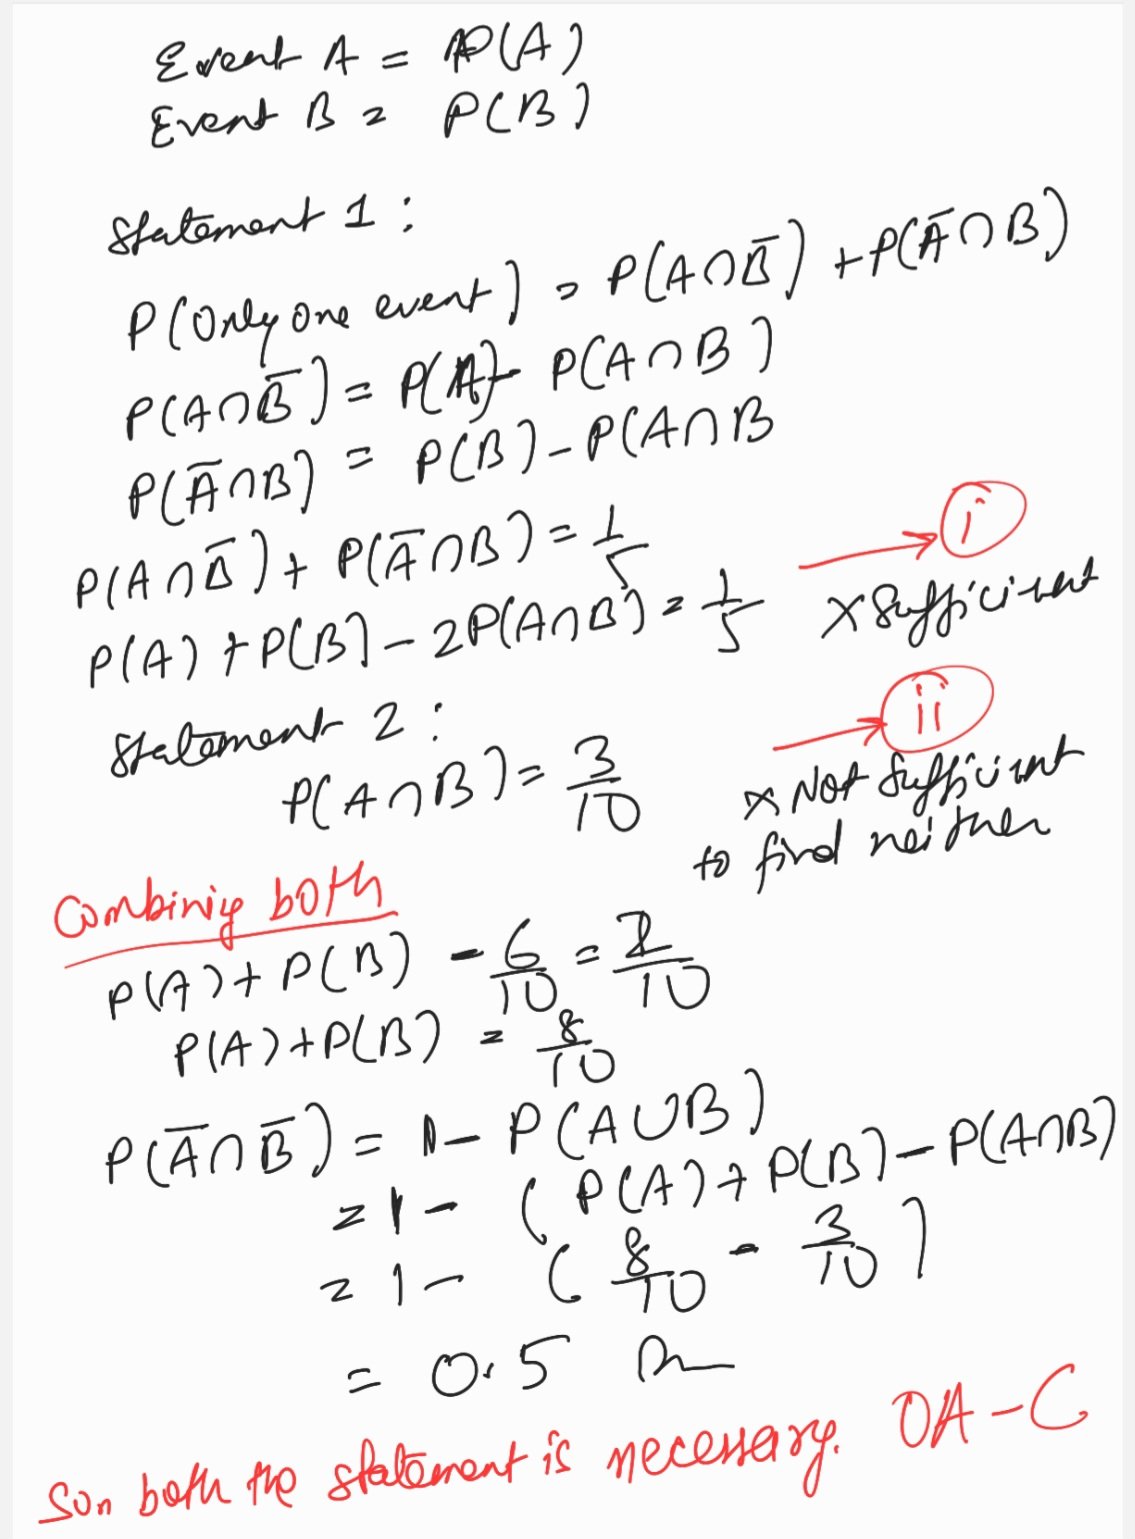 Event A = P(A)
Event B = P(B)
Statement 1 :
P(Only one event) = P(A∩B̅) + P(A̅∩B)
P(A∩B̅) = P(A) - P(A∩B)
P(A̅∩B) = P(B) - P(A∩B
P(A∩B̅) + P(A̅∩B) = 1/5
i
P(A) + P(B) - 2P(A∩B) = 1/5
X Sufficient
Statement 2 :
ii
P(A∩B) = 3/10
x Not Sufficient
to find neither
Combining both
P(A) + P(B) - 6/10 = 2/10
P(A) + P(B) = 8/10
P(A̅∩B̅) = 1 - P(A∪B)
= 1 - (P(A) + P(B) - P(A∩B)
= 1 - (8/10 - 3/10)
= 0.5
Son both the statement is necessary. OA-C